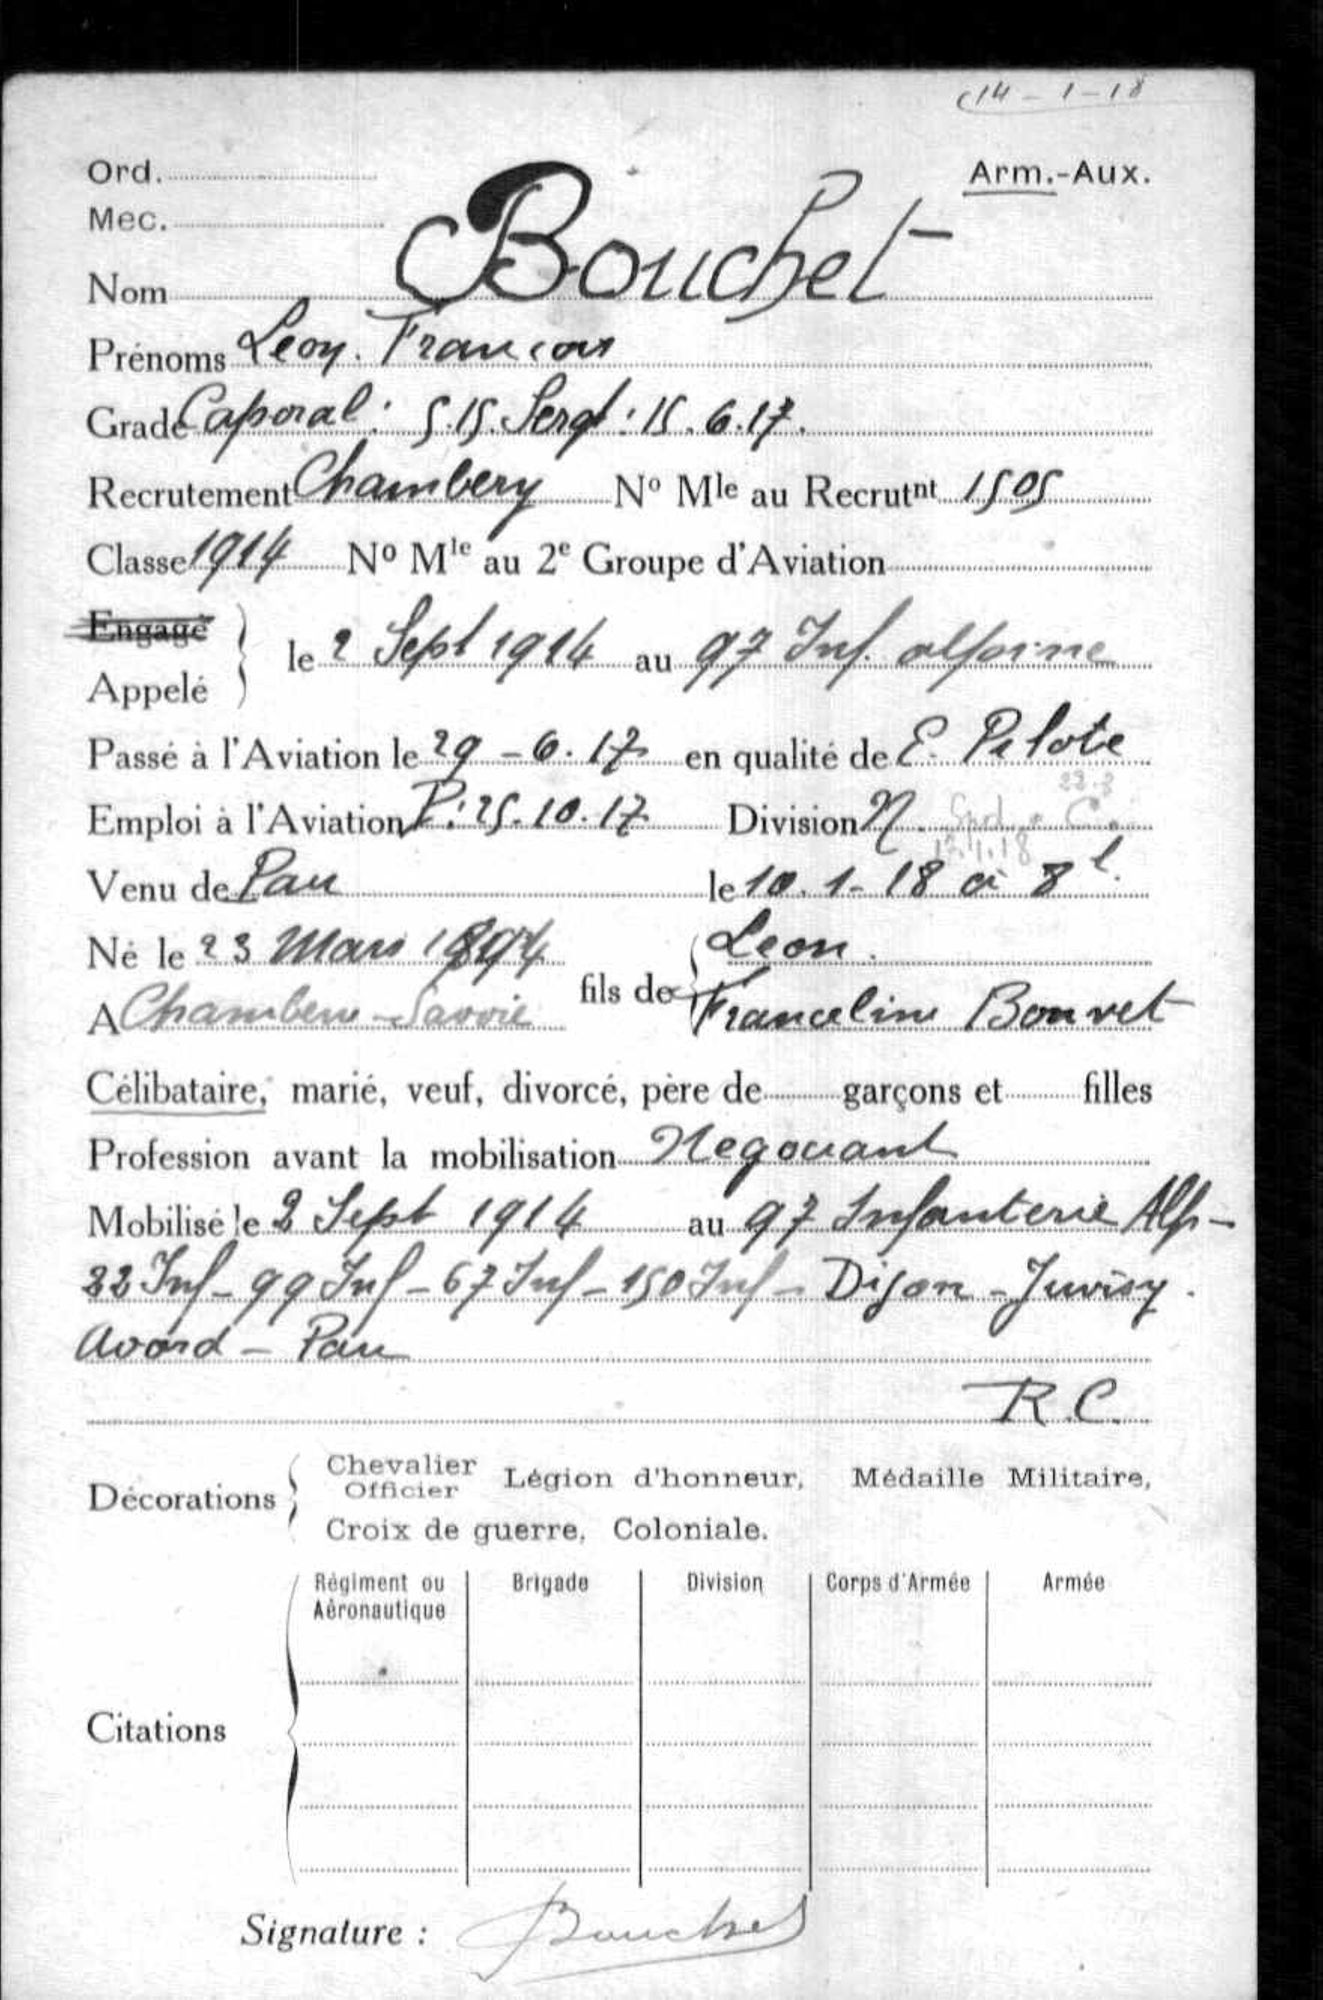 14-1-18
Ord.
Arm.-Aux.
Mec.
Nom Bouchet
Prénoms Leon. Francois
Grade Caporal: 5.15. Sergt: 15.6.17.
Recrutement Chambery No Mle au Recrutnt 1505
Classe 1914 No Mle au 2e Groupe d'Aviation
Engagé
le 2 Sept 1914 au 97 Inf. alpine
Appelé
Passé à l'Aviation le 29-6-17 en qualité de E. Pilote
Emploi à l'Aviation P: 25.10.17 Division N.
Venu de Pau le 10.1-18 a 8
Né le 23 Mars 1894
fils de Leon.
A Chambery-Savoie Franceline Bonvet
Célibataire, marié, veuf, divorcé, père de garçons et filles
Profession avant la mobilisation Negociant
Mobilisé le 2 Sept 1914 au 97 Infanterie Alp-
22 Inf-99 Inf-67 Inf-150 Inf-Dijon-Juvisy.
Avord-Pau
R.C.
Décorations
Chevalier
Officier
Légion d'honneur, Médaille Militaire,
Croix de guerre, Coloniale.
Citations
Régiment ou Aéronautique Brigade Division Corps d'Armée Armée
Signature : Bouchet